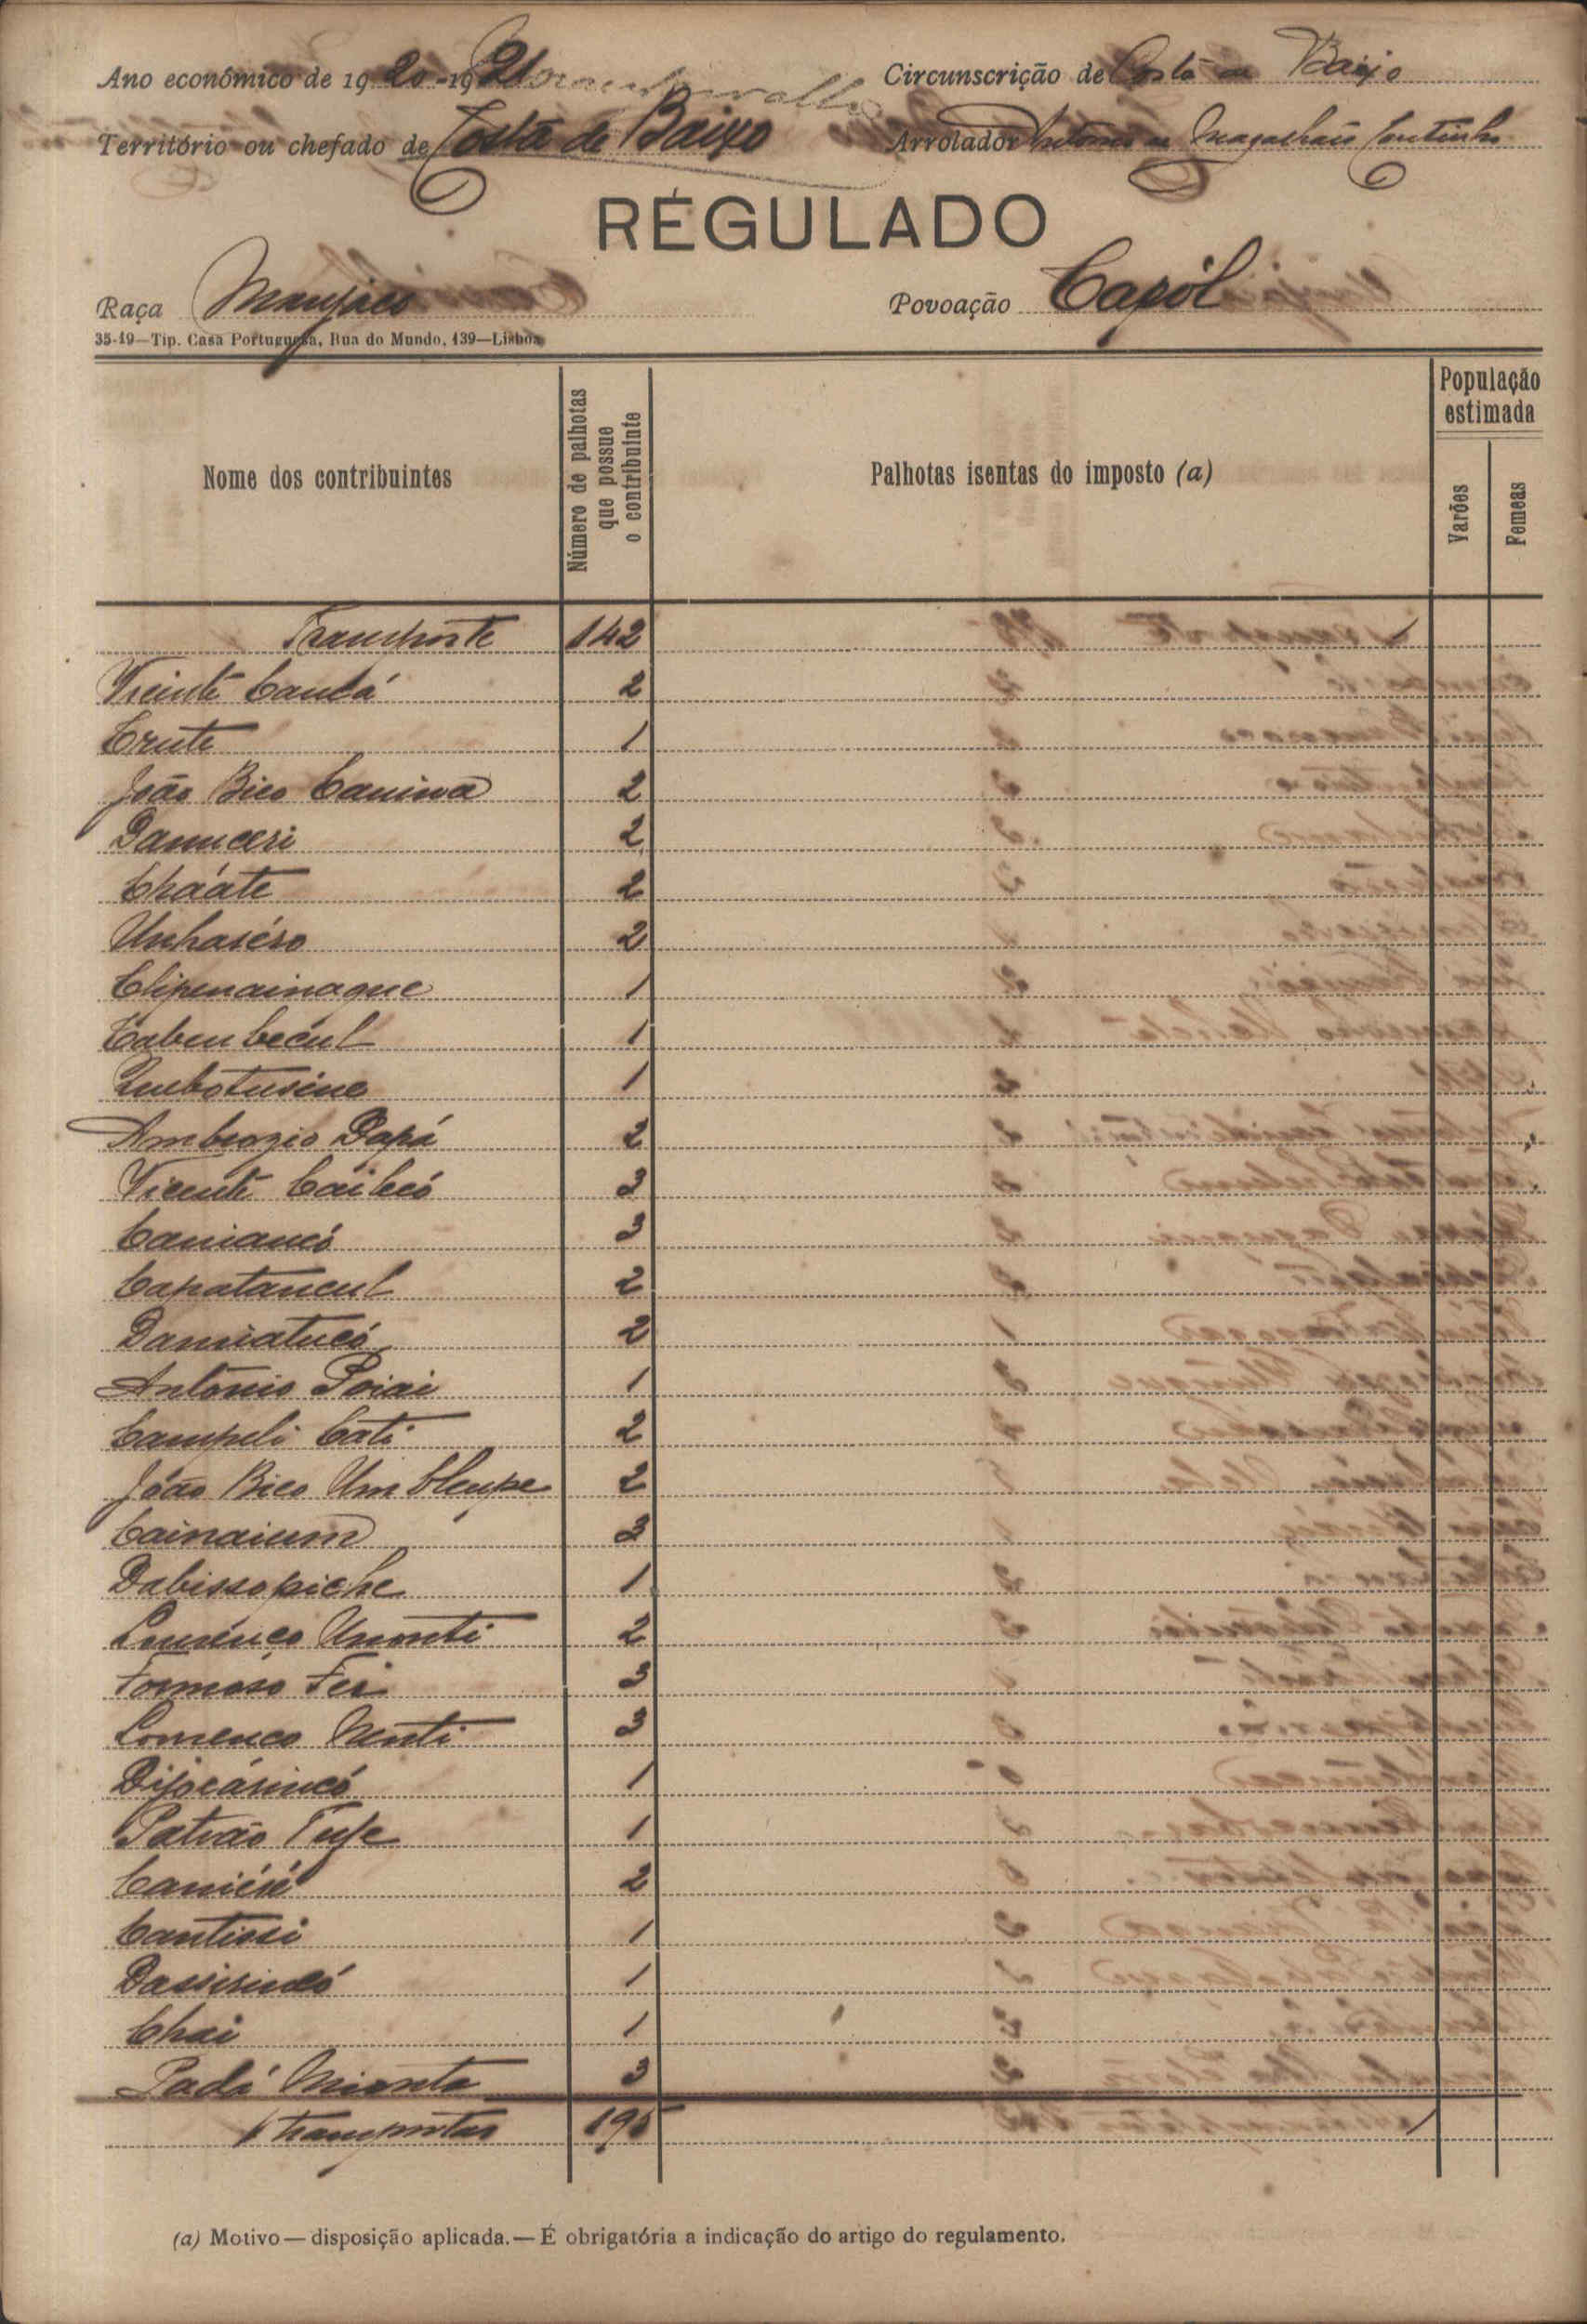 Ano económico de 1920-1921 Circunscrição de Costa de Baixo
Território ou chefado de Costa de Baixo Arrolador Antonio de Magalhães Coutinho
REGULADO
Raça Manjaco Povoação Capól
35-19—Tip. Casa Portuguesa, Rua do Mundo, 139—Lisboa
Nome dos contribuintes Número de palhotas que possue o contribuinte Palhotas isentas do imposto (a) População estimada
Varões Femeas
Transporte 142
Vicente Cancá 2
Crute 1
João Bico Canima 2
Damuceri 2
Cháate 2
Unhaséro 2
Clipenainaque 1
Caben becul 1
1
Ambrozio Dapá 2
Vicente Caibeó 3
Caniancó 3
Capatancul 2
Damiatucó 2
António Poiai 1
Campeli Cati 2
João Bico Um Cleupe 2
Cainaium 3
Dabissopiche 1
Lourenço Unonti 2
Formoso Fei 3
Lourenço Nenti 3
1
Patrão Tufe 1
2
Cantissi 1
Dassirincó 1
Chai 1
Padá Mionta 3
Transportar 195
(a) Motivo—disposição aplicada.—É obrigatória a indicação do artigo do regulamento.